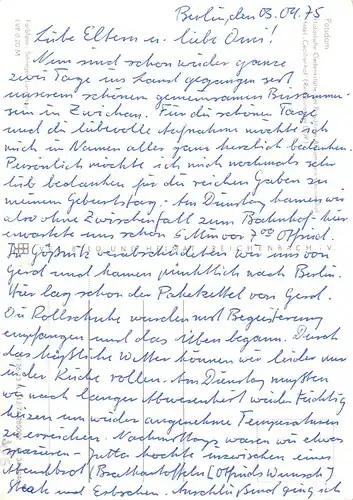 Berlin, den 03.04.75
Liebe Eltern u. liebe Omi!
Nun sind schon wieder ganze
zwei Tage ins Land gegangen seit
unserem schönen gemeinsamen Beisammen-
sein in Zwickau. Für die schönen Tage
und die liebevolle Aufnahme möchte ich
mich im Namen aller ganz herzlich bedanken.
Persönlich möchte ich mich nochmals sehr
lieb bedanken für die reichen Gaben zu
meinem Geburtstag. Am Dienstag kamen wir
also ohne Zwischenfall zum Bahnhof - hier
erwartete uns schon 5 Min vor 7.00 Otfried.
In Gößnitz verabschiedeten wir uns von
Gerd und kamen pünktlich nach Berlin.
Hier lag schon der Paketzettel von Gerd.
Die Rollschuhe wurden mit Begeisterung
empfangen und das Üben begann. Durch
das häßliche Wetter können wir leider nur
in der Küche rollen. Am Dienstag mußten
wir nach langer Abwesenheit wieder tüchtig
heizen um wieder angenehme Temperaturen
zu erreichen. Nachmittags waren wir etwas
spazieren - Jutta kochte inzwischen ein
Abendbrot (Bratkartoffeln (Otfrieds Wunsch)
Steak und Erbschen. Anschließend ging ich
BILD UND HEIMAT REICHENBACH I. V.
Potsdam
EVP 0,20 M